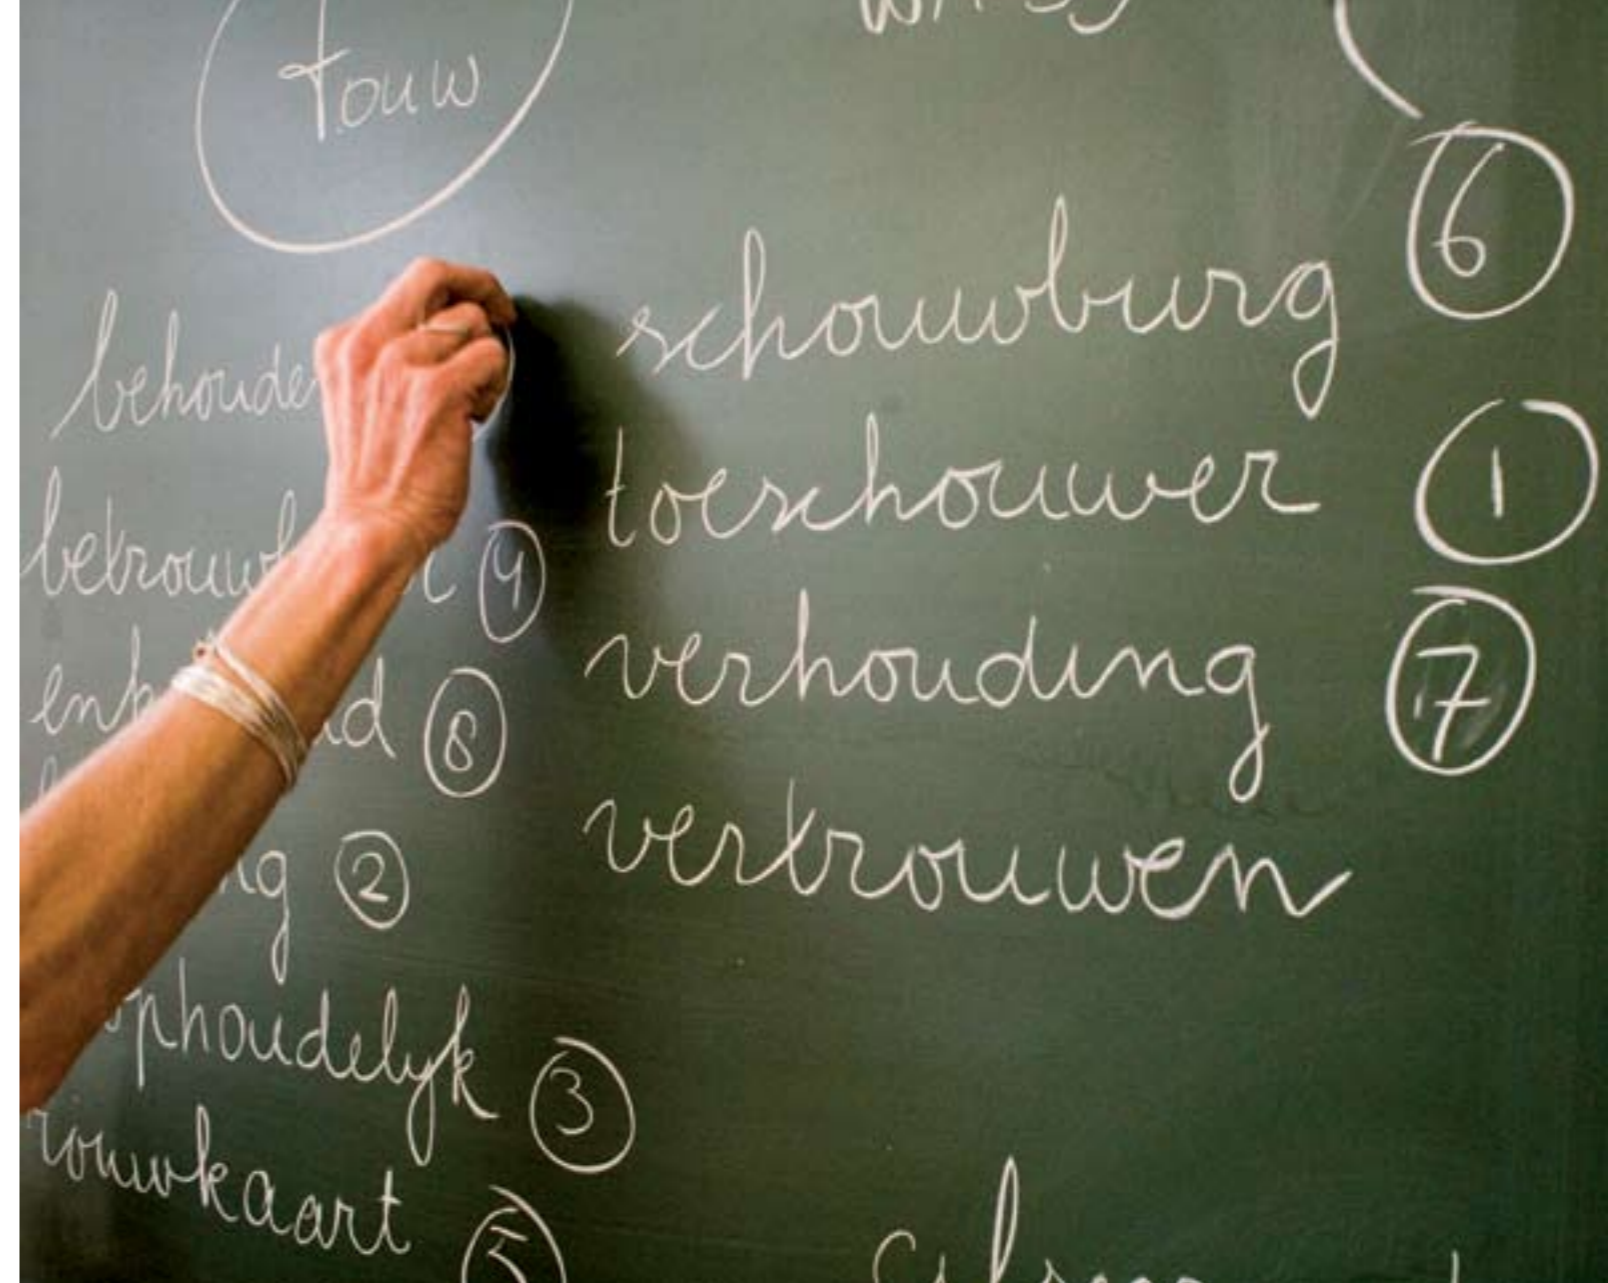 touw
behouden
betrouwbaar 4
8
2
ophoudelijk 3
rouwkaart 5
6
schouwburg
toeschouwer 1
verhouding 7
vertrouwen